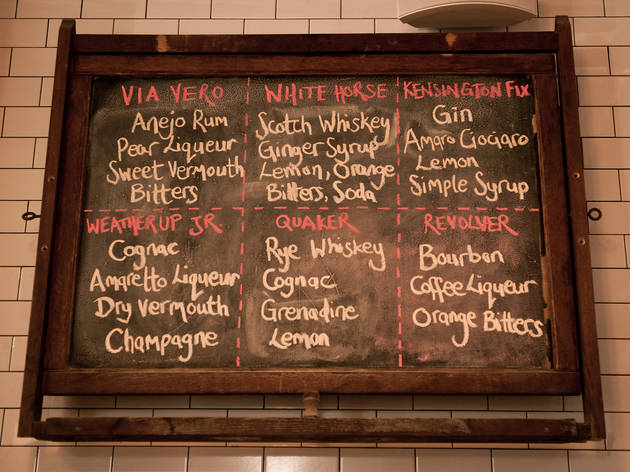 VIA VERO
Anejo Rum
Pear Liqueur
Sweet Vermouth
Bitters
WHITE HORSE
Scotch Whiskey
Ginger Syrup
Lemon, Orange
Bitters, Soda
KENSINGTON FIX
Gin
Amaro Ciociaro
Lemon
Simple Syrup
WEATHER UP JR.
Cognac
Amaretto Liqueur
Dry Vermouth
Champagne
QUAKER
Rye Whiskey
Cognac
Grenadine
Lemon
REVOLVER
Bourbon
Coffee Liqueur
Orange Bitters